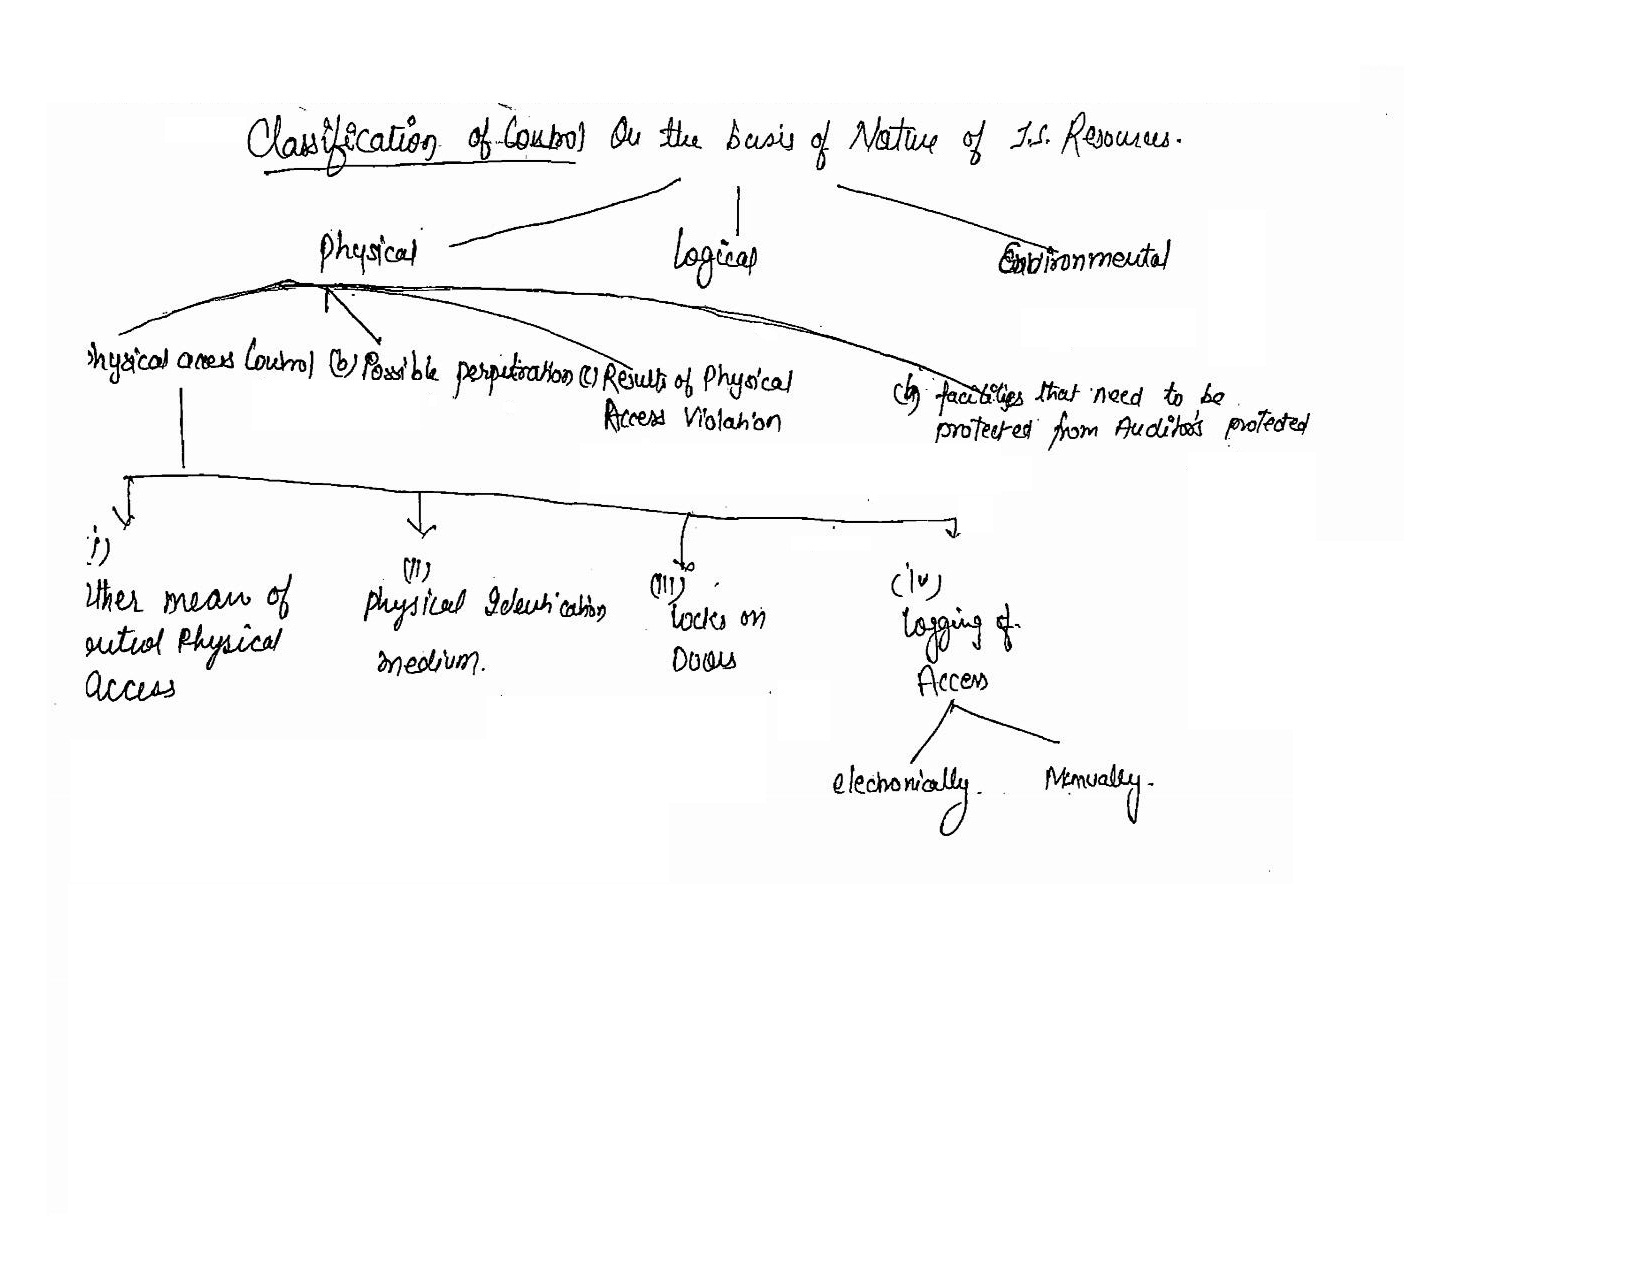 Classification of Control On the basis of Nature of I.S. Resources.
Physical
Logical
Environmental
hysical access Control (b) Possible perpetration (c) Results of Physical
Access Violation
facilities that need to be
protected from Auditors protected
i)
ther mean of
ontrol Physical
access
(ii)
Physical Identication
medium.
(iii)
Locks on
Doors
(iv)
Logging of
Access
electronically.
Manually.